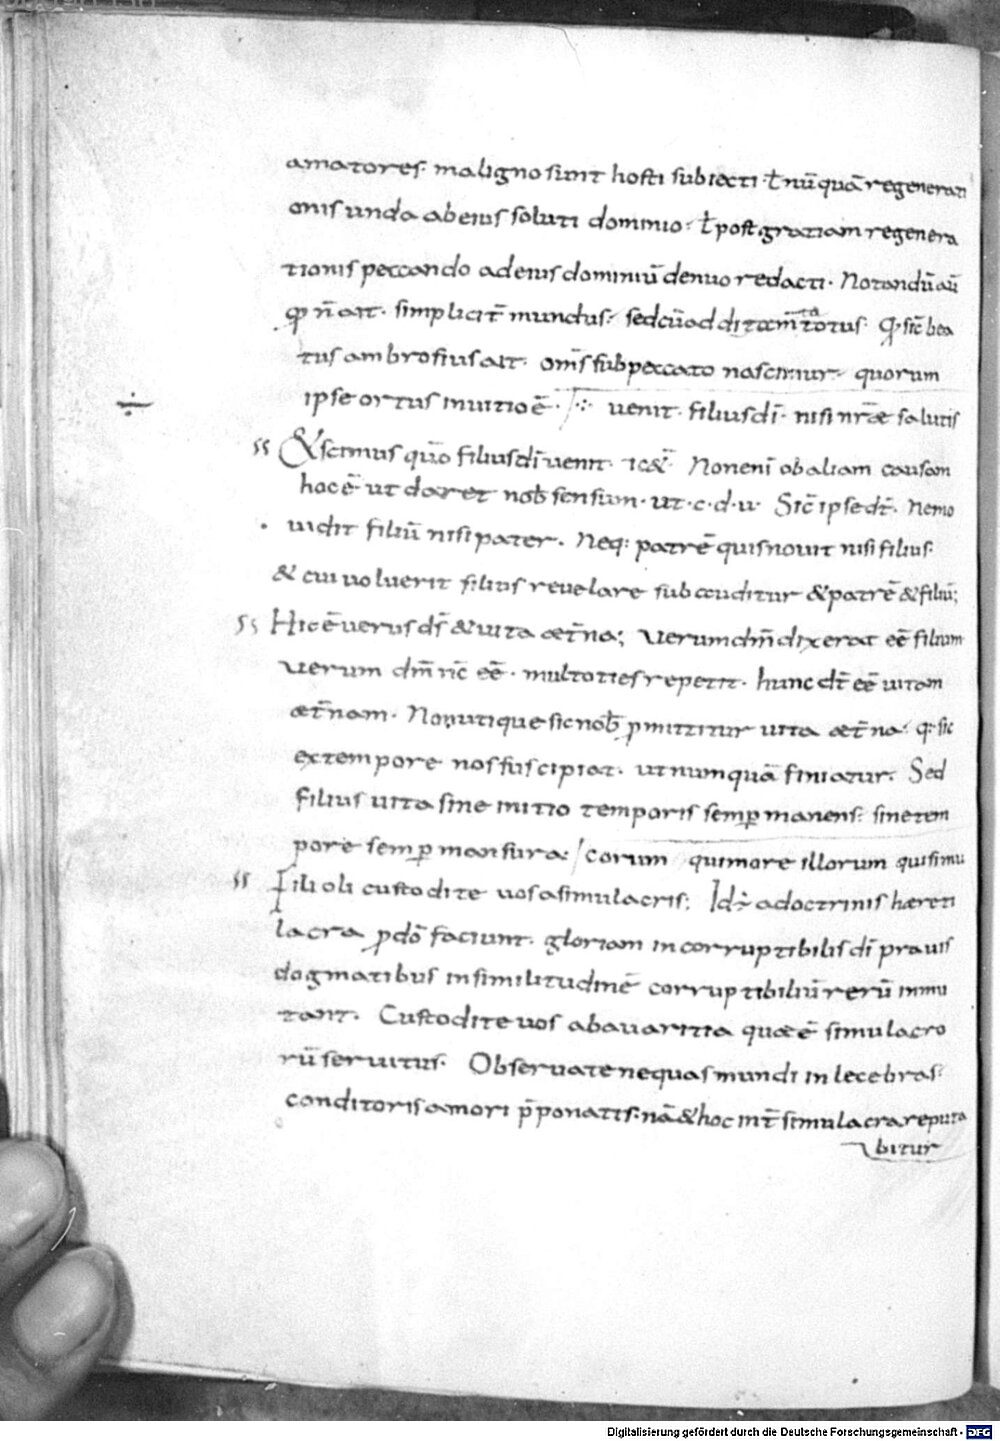 amatores· maligno sunt hosti subiecti· ł nū quā regenerati
onis unda ab eius soluti dominio· ł post gratiam regenera
tionis peccando ad eius dominiū denuo redacti· Notandū aū
qđ n̄ ait· simplicit̄ mundus· sed cū additam̄to totus· Q sic̄ bea
tus ambrosius ait· om̄s sub peccato nascimur· quorum
ipse ortus in uitio ē· uenit· filius dī· nisi nr̄ae salutis
Et scimus quō filius dī uenit· Non enī ob aliam causam
hoc ē ut daret nob̄ sensum· ut· c· d· u· Sic̄ ipse dt̄· Nemo
uidit filiū nisi pater· Neq: patrē quis nouit nisi filius·
& cui uoluerit filius reuelare sub auditur & patrē & filiū;
Hic ē uerus ds̄ & uita aet̄na; Uerum dm̄ dixerat eē filium
uerum dm̄ nc̄ eē· multoties repetit· hunc dt̄ eē uitam
aet̄nam· Non utique sic nob̄ ꝓmittitur uita aet̄na· q· sic
ex tempore nos suscipiat· ut numquā finiatur· Sed
filius uita sine initio temporis semꝑ manens· sine tem
pore semꝑ mansura· corum qui more illorum qui simu
Filioli custodite uos a simulacris; Id ÷ a doctrinis haereti
lacra ꝑdō faciunt· gloriam incorruptibilis dī prauis
dogmatibus in similitudinē corruptibiliū rerū inmu
tant· Custodite uos ab auaritia quae ē simulacro
rū seruitus· Obseruate ne quas mundi inlecebras·
conditoris amori p̄ponatis· nā & hoc int̄ simulacra reputa
bitur
Digitalisierung gefördert durch die Deutsche Forschungsgemeinschaft - DFG